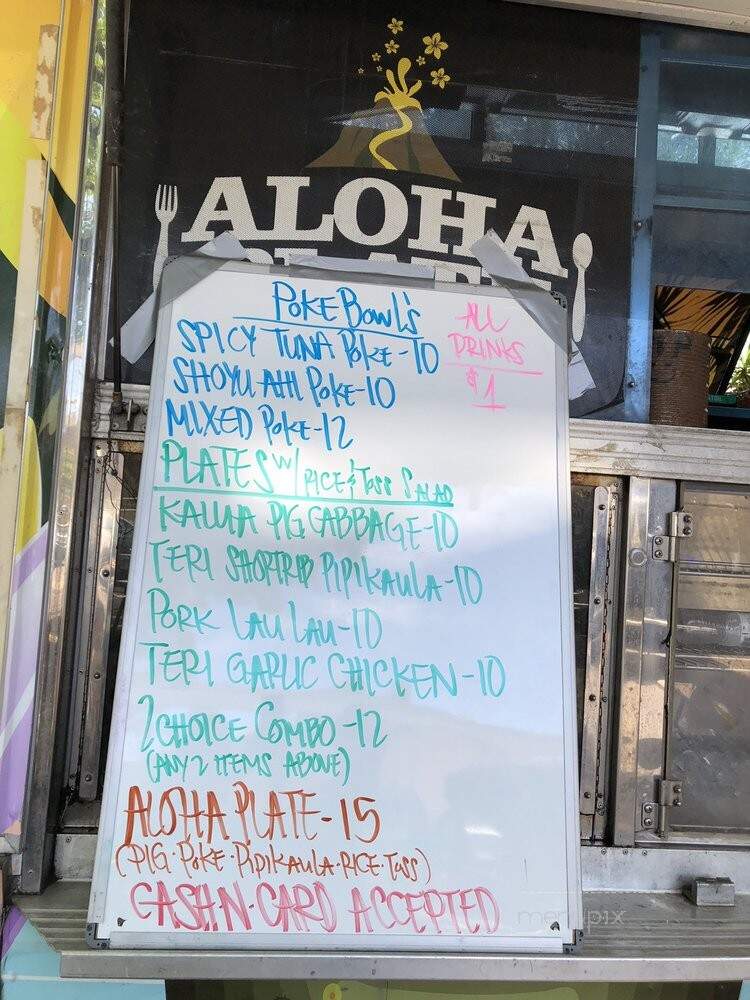 ALOHA
PLATE
POKE BOWL'S
SPICY TUNA POKE-10
SHOYU AHI POKE-10
MIXED POKE-12
ALL
DRINKS
$1
PLATES W/ RICE & TOSS SALAD
KALUA PIG CABBAGE-10
TERI SHORTRIB PIPIKAULA-10
PORK LAU LAU-10
TERI GARLIC CHICKEN-10
2 CHOICE COMBO-12
(ANY 2 ITEMS ABOVE)
ALOHA PLATE-15
(PIG·POKE·PIPIKAULA·RICE·TOSS)
CASH·N·CARD ACCEPTED
menupix